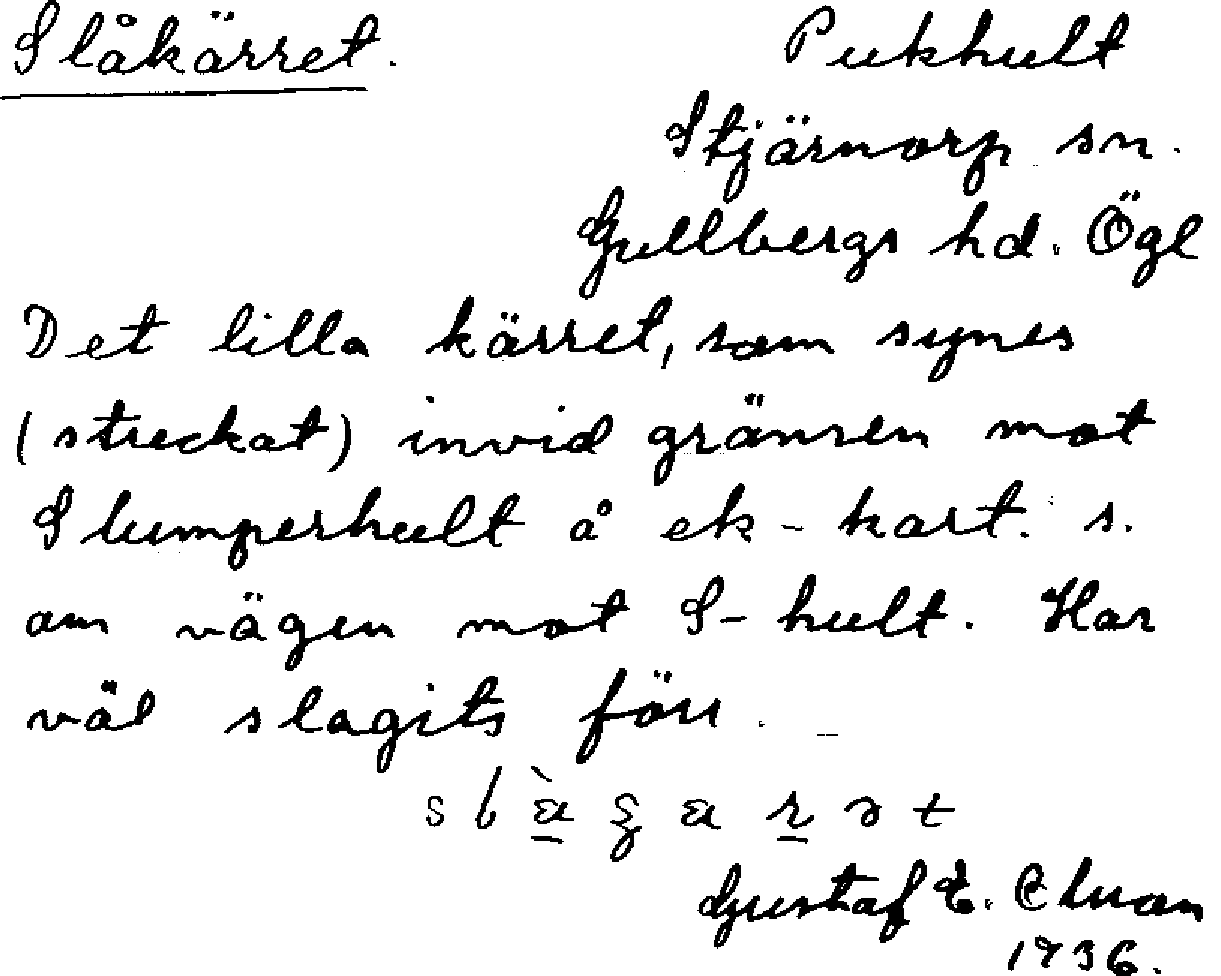 Slåkärret.
Pukhult
Stjärnorp sn.
Gullbergs hd. Ögl
Det lilla kärret, som synes
(streckat) invid gränsen mot
Slumperhult å ek-kart. s.
om vägen mot S-hult. Har
väl slagits förr.
Gustaf E.
1936.